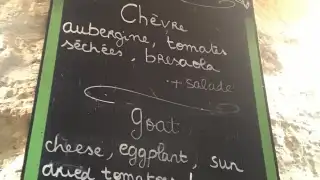 Chêvre
aubergine, tomates
séchées, bresaola
+ salade
goat
cheese, eggplant, sun
dried tomatoes,